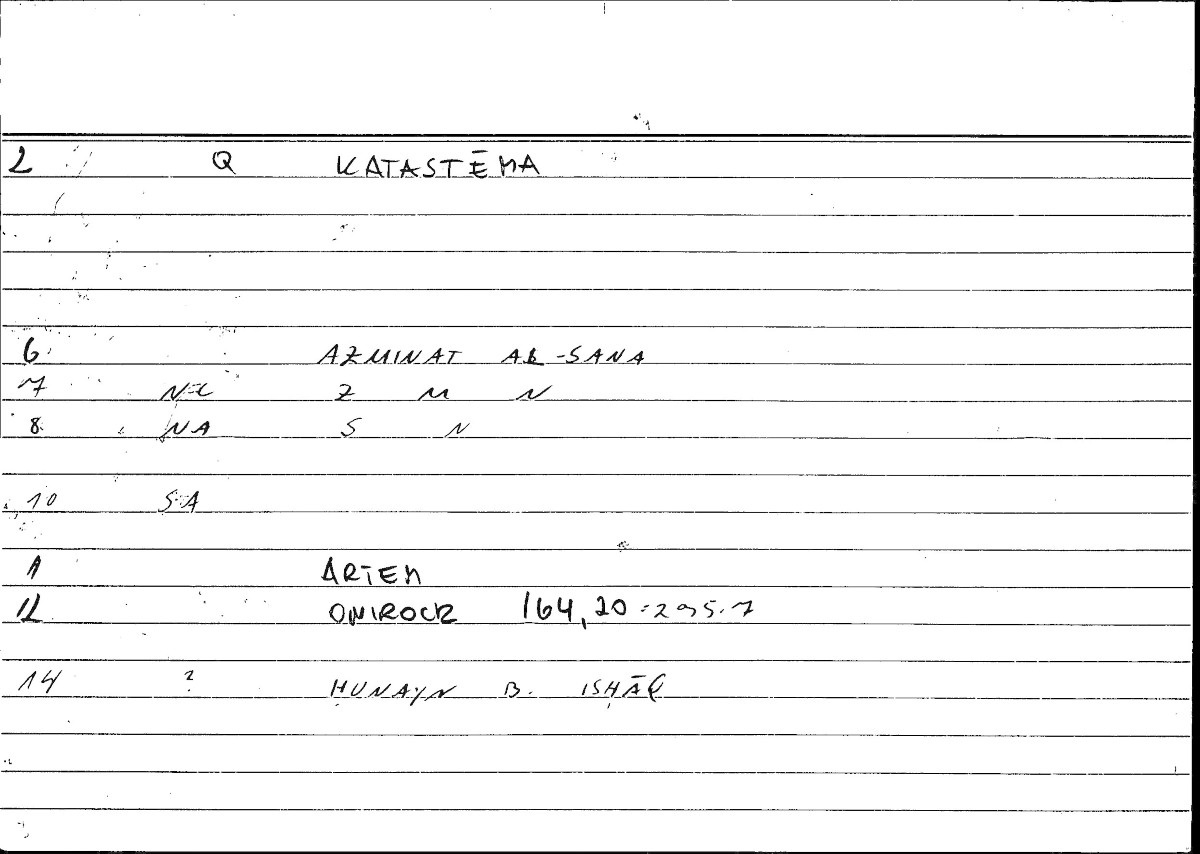 2 Q KATASTĒMA
6 AZMINAT AL-SANA
7 Z M N
8 NA S N
10 SA
1 ARTEM
12 ONIROCR 164,20 = 295.7
14 ? ḤUNAYN B. ISḤĀQ